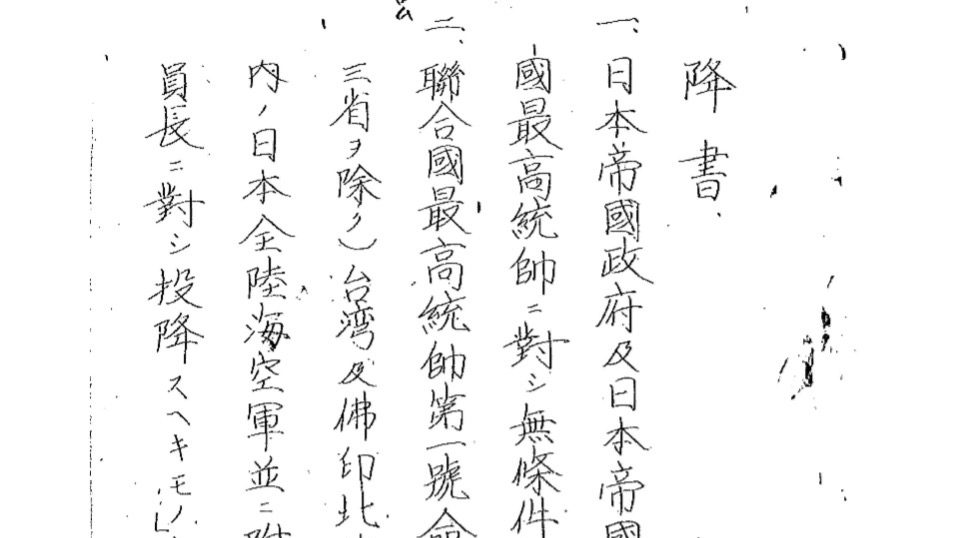 降書
一、日本帝國政府及日本帝國
國最高統帥ニ對シ無條件
二、聯合國最高統帥第一號命
三省ヲ除ク）台湾及佛印北
内ノ日本全陸海空軍並ニ附
員長ニ對シ投降スヘキモノ